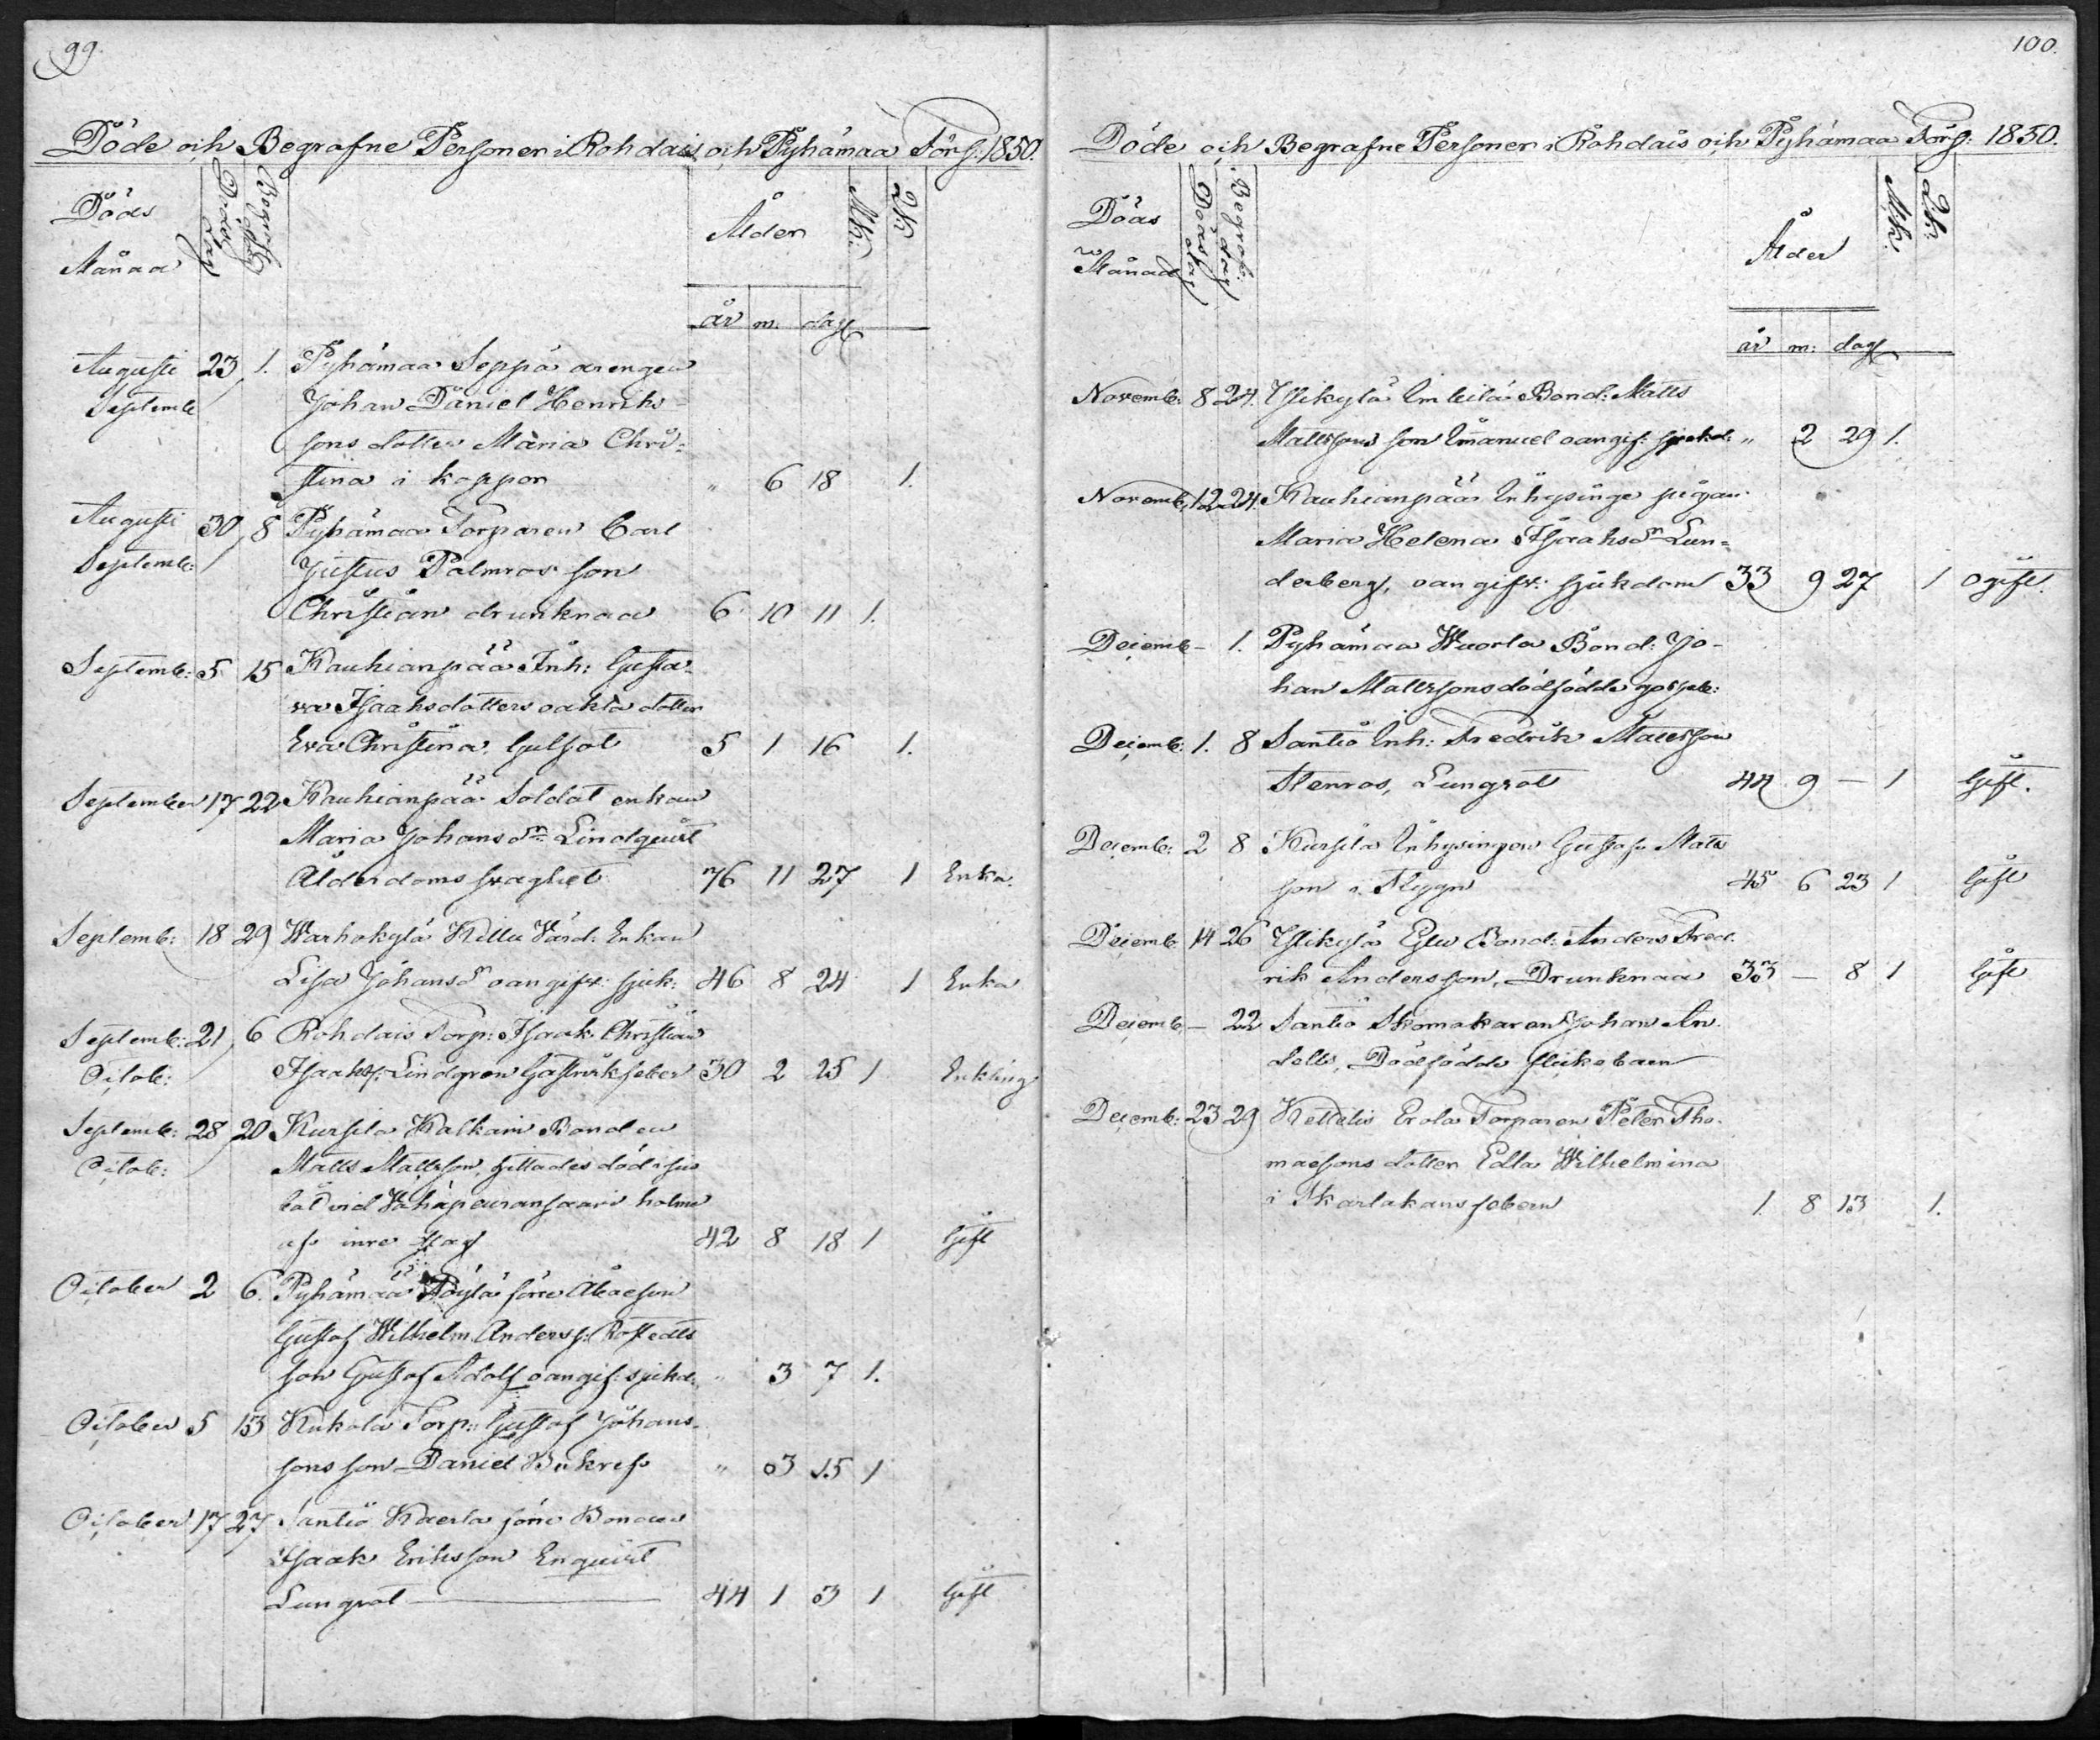 99.
Döde och Begrafne Personer i Rohdais och Pyhämaa Förs: 1850.
Döds Månad
Dödsdag
Begrafn: dag
Ålder
Mk:
Qk:
år m: dag
Augusti 23 1. Pyhämaa Seppä drengen
Septemb Johan Daniel Henriks-
sons dotter Maria Chri-
stina i koppor " 6 18 1.
Augusti 30 8 Pyhämaa Torparen Carl
Septemb: Justus Palmros son
Christian drunknad 6 10 11 1.
Septemb: 5 15 Kauhianpää Inh: Gusta-
va Isaksdotters oäkta dotter
Eva Christina Gulsot 5 1 16 1.
September 17 22 Kauhianpää Soldat enkan
Maria Johansdr Lindquist
Ålderdoms svaghet 76 11 27 1 Enka.
Septemb: 18 29 Warhokylä Killu Värd: Enkan
Lisa Johansdr oangifv: sjuk: 46 8 24 1 Enka
Septemb: 21 6 Rohdais Torp: Isaak Christian
Octob: Isaakss: Lindgren Gastrisk feber 30 2 25 1 Enkling
Septemb: 28 20 Kursila Kalkain Bonden
Octob: Matts Mattsson, hittades död i sin
båt vid holme
af inre slag 42 8 18 1 Gift
October 2 6. Pyhämaa Pöylä förre Åboeson
Gustaf Wilhelm Anderss: Rostedts
son Gustaf Adolf oangif: sjukd: " 3 7 1.
October 5 13 Kukola Torp: Gustaf Johans-
sons son Daniel Bukref " 3 15 1
October 17 27 Santio Kaerla förre Bonden
Isaak Eriksson Enquist
Lungsot 44 1 3 1 Gift
100.
Döde och Begrafne Personer i Rohdais och Pyhämaa Förs: 1850.
Döds Månad
Dödsdag
Begrafn: dag
Ålder
Mk:
Qk:
år m: dag
Novemb: 8 24. Ylikylä Imbilä Bond: Matts
Mattssons son Emanuel oangif: sjukd: " 2 29 1.
Novemb: 12 24. Kauhianpää Inhysinge pigan
Maria Helena Isaksdr Lun-
derberg, oangifv: sjukdom 33 9 27 1 ogift.
Decemb - 1. Pyhämaa Wuorla Bond: Jo-
han Mattssons dödfödde gosseb:
Decemb: 1. 8 Santio Inh: Fredrik Mattsson
Stenros, Lungsot 44 9 — 1 Gift.
Decemb: 2 8 Kursila Inhysingen Gustaf Matts
son i Flygn 45 6 23 1 Gift
Decemb 14 26 Ylikylä Eglu Bond: Anders Fred-
rik Andersson, Drunknad 33 — 8 1 Gift
Decemb — 22 Santio Skomakaren Johan An-
dells, Dödfödde flickebarn
Decemb: 23 29 Kettelis Erola Torparen Peter Tho-
massons dotter Edla Wilhelmina
i Skarlakansfebern 1 8 13 1.